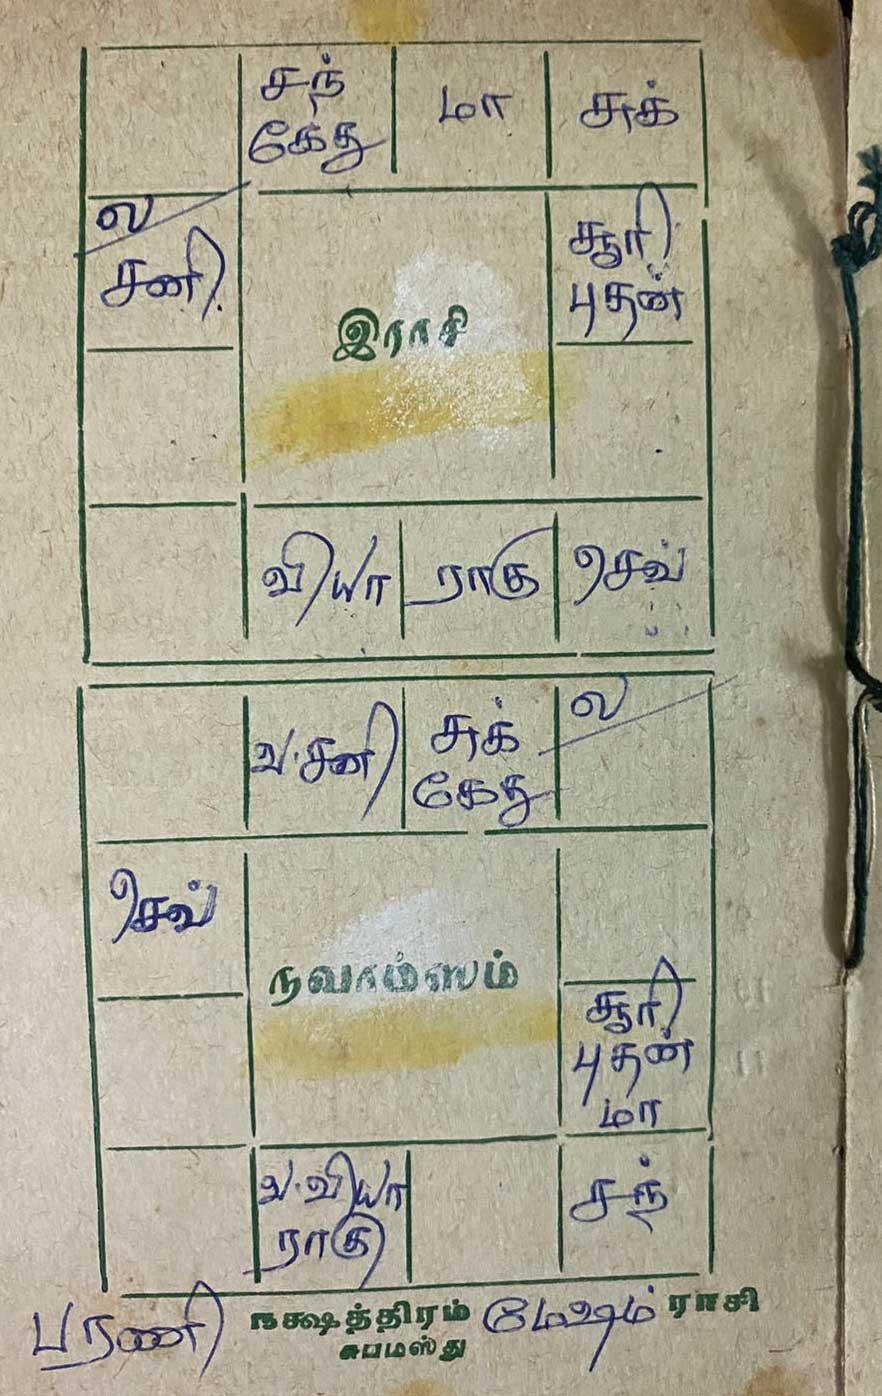 சந் மா சுக்
கேது
ல சூரி
சனி புதன்
இராசி
வியா ராகு செவ்
வ.சனி சுக் ல
கேது
செவ்
நவாம்ஸம்
சூரி
புதன்
மா
வ.வியா சந்
ராகு
பரணி நக்ஷத்திரம் மேஷம் ராசி
சுபமஸ்து